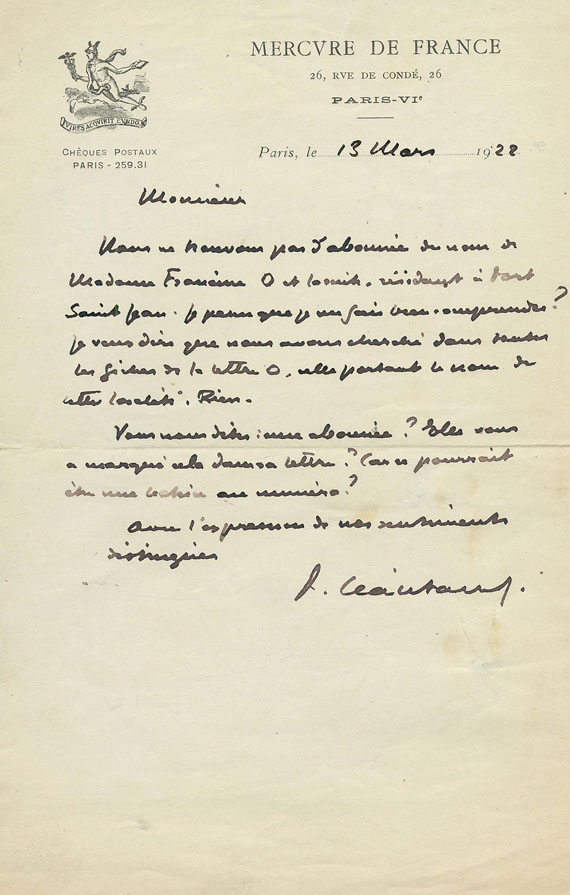 MERCVRE DE FRANCE
26, RVE DE CONDÉ, 26
PARIS-VIᵉ
VIRES ACQVIRIT EVNDO
CHÈQUES POSTAUX
PARIS - 259.31
Paris, le 13 Mars 1922
Monsieur
Nous ne trouvons pas d'abonnée du nom de
Madame Francine O et , résidant à
Saint Jean. Je pense que je me fais bien comprendre?
Je veux dire que nous avons cherché dans toutes
les fiches de la lettre O, celle portant le nom de
cette localité. Rien.
Vous nous dites : une abonnée? Elle vous
a marqué cela dans sa lettre? Car ce pourrait
être une au numéro?
Avec l'expression de nos sentiments
distingués
P. Léautaud.